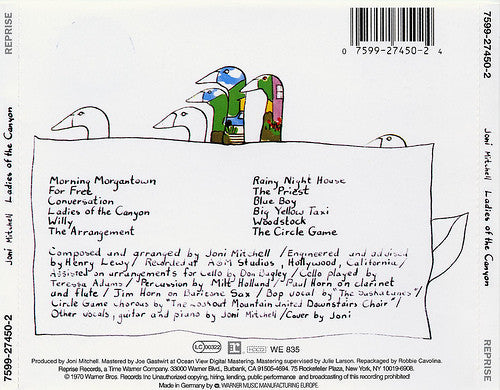 REPRISE
Joni Mitchell Ladies of the Canyon
7599-27450-2
0 7599-27450-2 4
7599-27450-2
Joni Mitchell Ladies of the Canyon
REPRISE
Morning Morgantown
For Free
Conversation
Ladies of the Canyon
Willy
The Arrangement
Rainy Night House
The Priest
Blue Boy
Big Yellow Taxi
Woodstock
The Circle Game
Composed and arranged by Joni Mitchell / Engineered and advised
by Henry Lewy / Recorded at A&M Studios, Hollywood, California /
Assisted on arrangements for Cello by Don Bagley / Cello played by
Teressa Adams / Percussion by Milt Holland / Paul Horn on clarinet
and flute / Jim Horn on Baritone Sax / Bop vocal by "The Saskatunes" /
Circle Game Chorous by "The Lookout Mountain United Downstairs Choir" /
Other vocals, guitar and piano by Joni / Cover by Joni
LC 00322 WE 835
Produced by Joni Mitchell. Mastered by Joe Gastwirt at Ocean View Digital Mastering. Mastering supervised by Julie Larson. Repackaged by Robbie Cavolina.
Reprise Records, a Time Warner Company, 3300 Warner Blvd., Burbank, CA 91505-4694. 75 Rockefeller Plaza, New York, NY 10019-6908.
© 1970 Warner Bros. Records Inc Unauthorized copying, hiring, lending, public performance and broadcasting of this recording prohibited!
Made in Germany by WARNER MUSIC MANUFACTURING EUROPE.